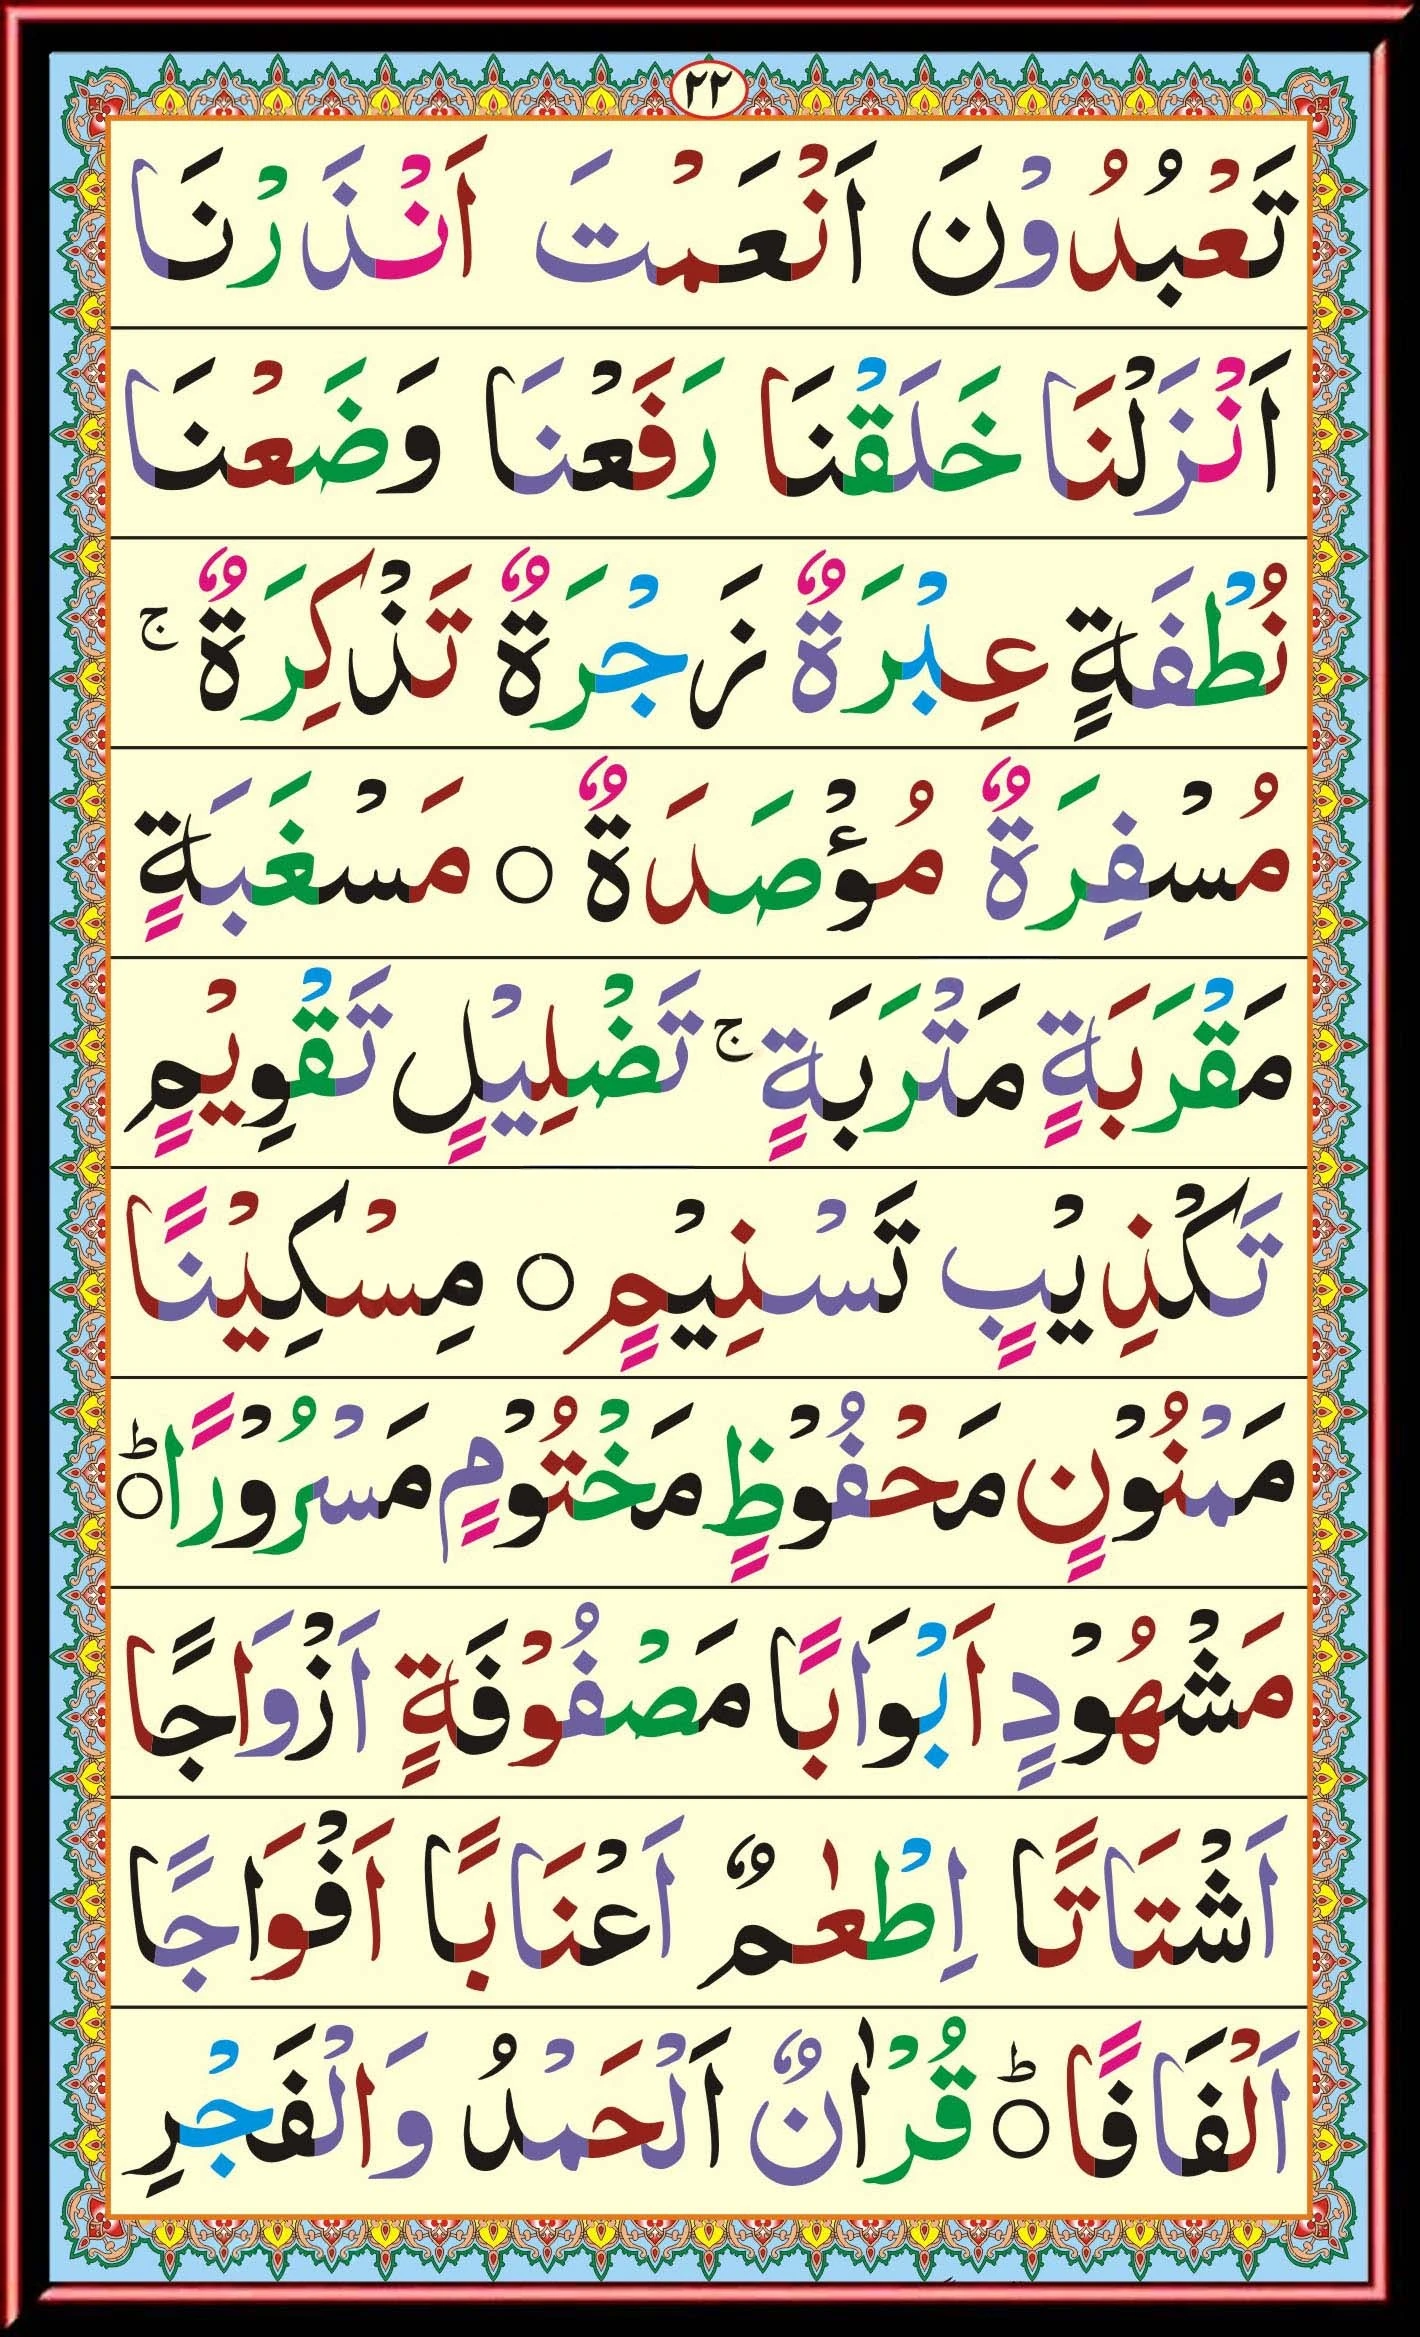 ٢٢
تَعْبُدُوْنَ اَنْعَمْتَ اَنْذَرْنَا
اَنْزَلْنَا خَلَقْنَا رَفَعْنَا وَضَعْنَا
نُطْفَةٍ عِبْرَةٌ نَجْرَةٌ تَذْكِرَةٌ ۚ
مُسْفِرَةٌ مُؤْصَدَةٌ ○ مَسْغَبَةٍ
مَقْرَبَةٍ مَتْرَبَةٍ ۚ تَضْلِيْلٍ تَقْوِيْمٍ
تَكْذِيْبٍ تَسْنِيْمٍ ○ مِسْكِيْنًا
مَمْنُوْنٍ مَحْفُوْظٍ مَخْتُوْمٍ مَسْرُوْرًا ○ؕ
مَشْهُوْدٍ اَبْوَابًا مَصْفُوْفَةٍ اَزْوَاجًا
اَشْتَاتًا اِطْعٰمٌ اَعْنَابًا اَفْوَاجًا
اَلْفَافًا ○ؕ قُرْاٰنٌ اَلْحَمْدُ وَالْفَجْرِ